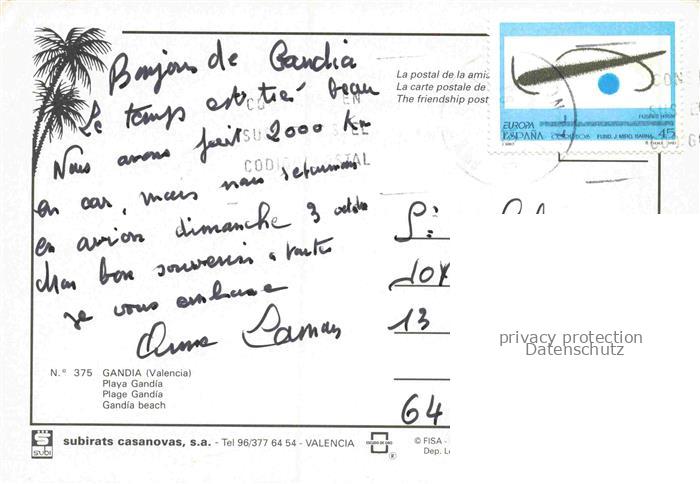 Bonjour de Gandia
Le temps est très beau
Nous avons fait 2000 Km
en car, mais nous retournons
en avion dimanche 3 octobre
Mon bon souvenir a toutes
je vous embrasse
Anne
La postal de la amis
La carte postale de
The friendship post
EN
SU
EL
CODIGO POSTAL
EUROPA
ESPAÑA
CORREOS
FUND. J. MIRO. BARNA.
45
13
64
privacy protection
Datenschutz
N.° 375 GANDIA (Valencia)
Playa Gandía
Plage Gandía
Gandía beach
SUBI
subirats casanovas, s.a. - Tel 96/377 64 54 - VALENCIA
ESCUDO DE ORO
®
© FISA -
Dep. L